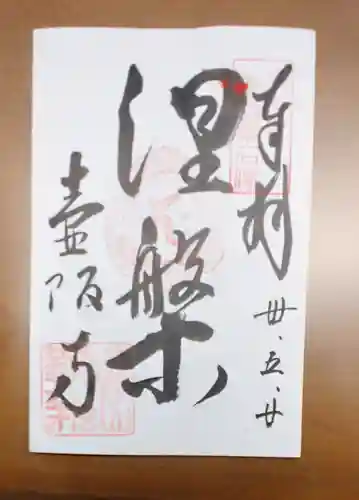 奉拝
卅、五、廿
涅槃
壷阪寺